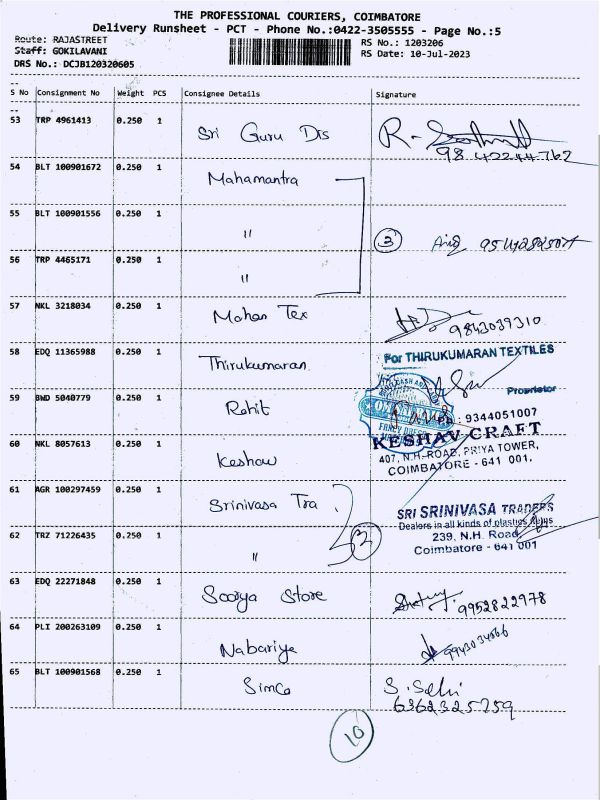 THE PROFESSIONAL COURIERS, COIMBATORE
Delivery Runsheet - PCT - Phone No.:0422-3505555 - Page No.:5
Route: RAJASTREET
RS No.: 1203206
Staff: GOKILAVANI
RS Date: 10-Jul-2023
DRS No.: DCJB120320605
S No Consignment No Weight PCS Consignee Details Signature
53 TRP 4961413 0.250 1 Sri Guru Dis R-
98 42244 762
54 BLT 100901672 0.250 1 Mahamantra
55 BLT 100901556 0.250 1 " 3
56 TRP 4465171 0.250 1 "
57 NKL 3218034 0.250 1 Mohan Tex 9843039310
For THIRUKUMARAN TEXTILES
58 EDQ 11365988 0.250 1 Thirukumaran
Proprietor
59 BWD 5040779 0.250 1 Rohit : 9344051007
FANCY DRESS
60 NKL 8057613 0.250 1 Keshav KESHAV CRAFT
407, N.H. ROAD, PRIYA TOWER,
COIMBATORE - 641 001.
61 AGR 100297459 0.250 1 Srinivasa Tra SRI SRINIVASA TRADERS
Dealers in all kinds of plastics
62 TRZ 71226435 0.250 1 " 2 239, N.H. Road,
Coimbatore - 641 001
63 EDQ 22271848 0.250 1 Soorya Store 9952822978
64 PLI 200263109 0.250 1 Nabariya 9943034666
65 BLT 100901568 0.250 1 Simco S. Selvi
6362325759
10